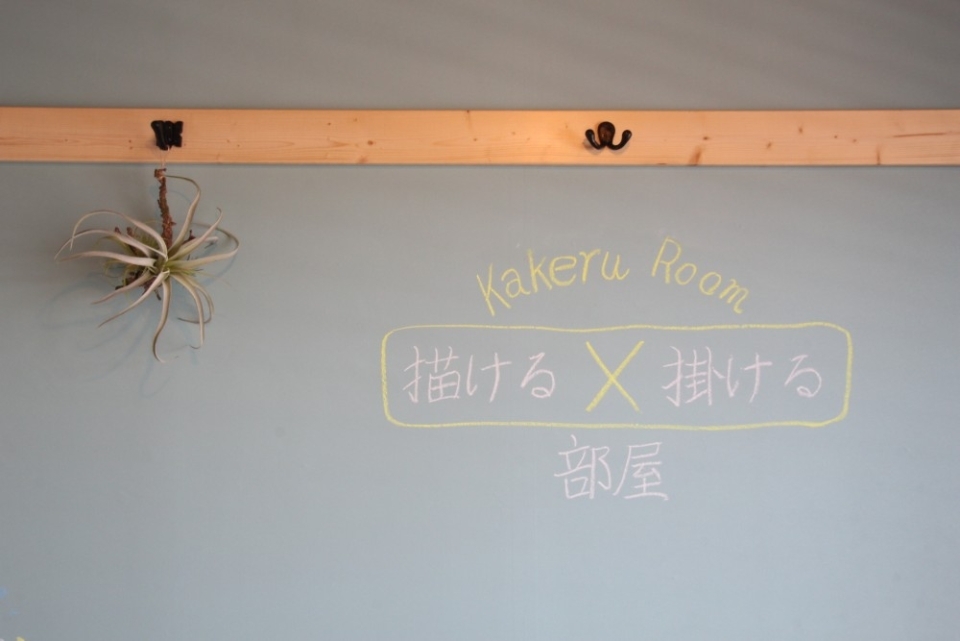 Kakeru Room
描ける X 掛ける
部屋